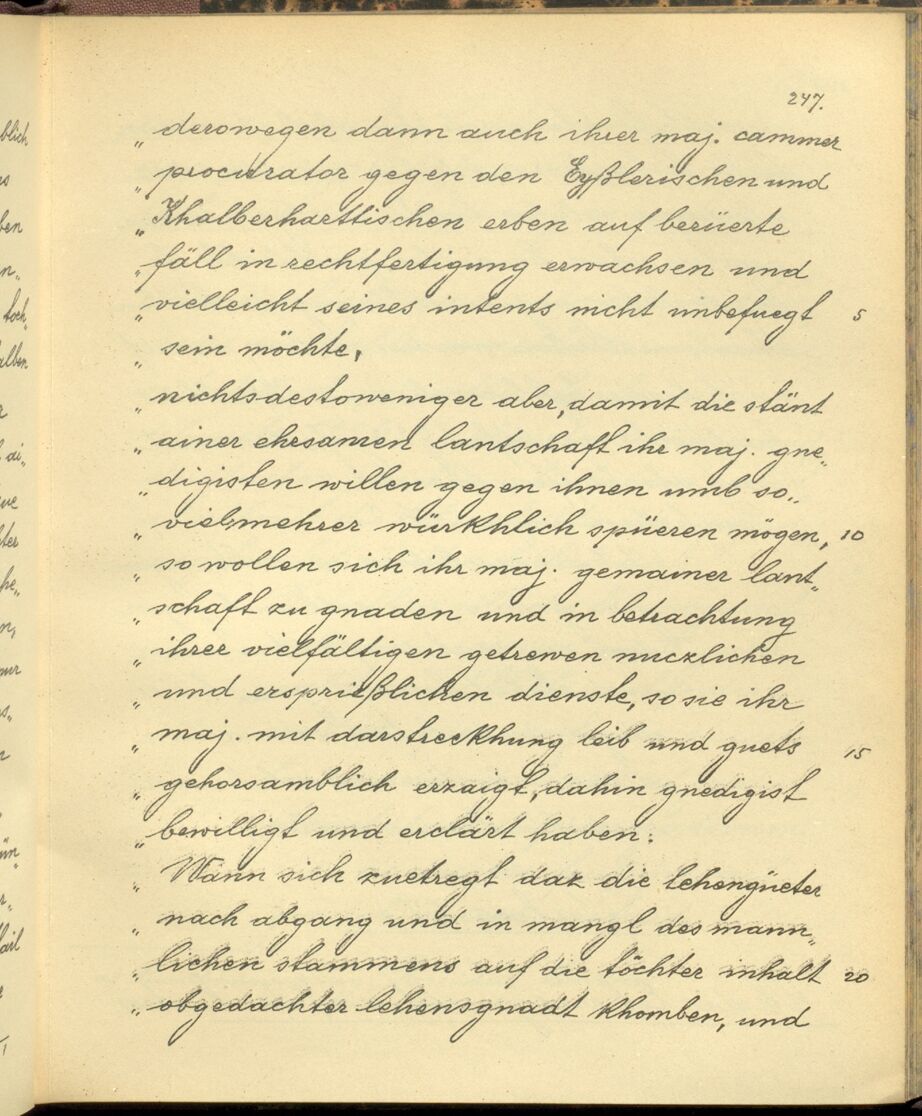 247.
„ derowegen dann auch ihrer maj. cammer
„ procurator gegen den Eyßlerischen und
„ Khalberharttischen erben auf berüerte
„ fäll in rechtfertigung erwachsen und
„ vielleicht seines intents nicht unbefuegt 5
„ sein möchte,
„ nichtsdestoweniger aber, damit die stänt
„ ainer ehrsamen lantschaft ihr maj. gne„
„ digisten willen gegen ihnen umb so„
„ vielmehrer würkhlich spüeren mögen, 10
„ so wollen sich ihr maj. gemainer lant„
„ schaft zu gnaden und in betrachtung
„ ihrer vielfältigen getrewen nuczlichen
„ und ersprießlichen dienste, so sie ihr
„ maj. mit darstreckhung leib und guets 15
„ gehorsamblich erzaigt, dahin gnedigist
„ bewilligt und erclärt haben:
„ Wann sich zuetregt daz die lehengüeter
„ nach abgang und in mangl des mann„
„ lichen stammens auf die töchter inhalt 20
„ obgedachter lehensgnadt khomben, und